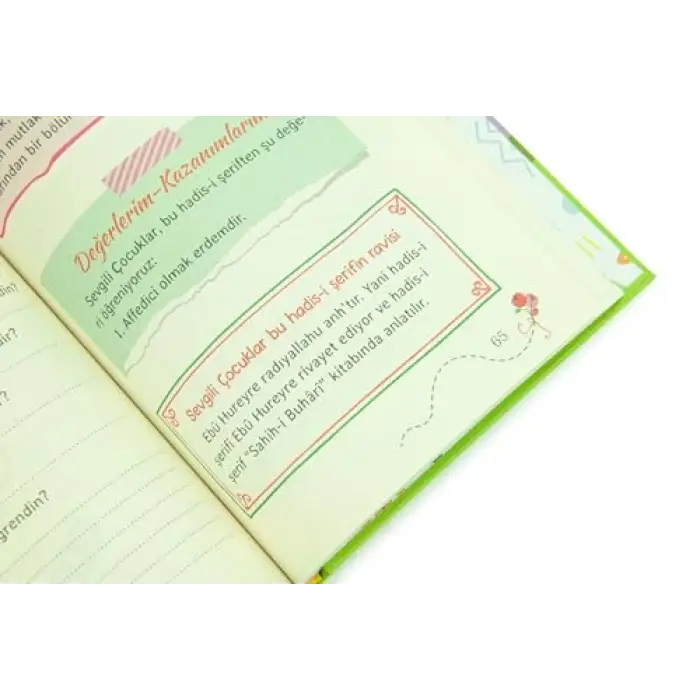 n mutlak
arından bir bölü
Değerlerim-Kazanımlarım
Sevgili Çocuklar, bu hadis-i şeriften şu değe-
ri öğreniyoruz:
1. Affedici olmak erdemdir.
Sevgili Çocuklar bu hadis-i şerifin ravisi
Ebû Hureyre radıyallahu anh'tır. Yani hadis-i
şerifi Ebû Hureyre rivayet ediyor ve hadis-i
şerif "Sahih-i Buhârî" kitabında anlatılır.
65
din?
ir?
?
grendin?